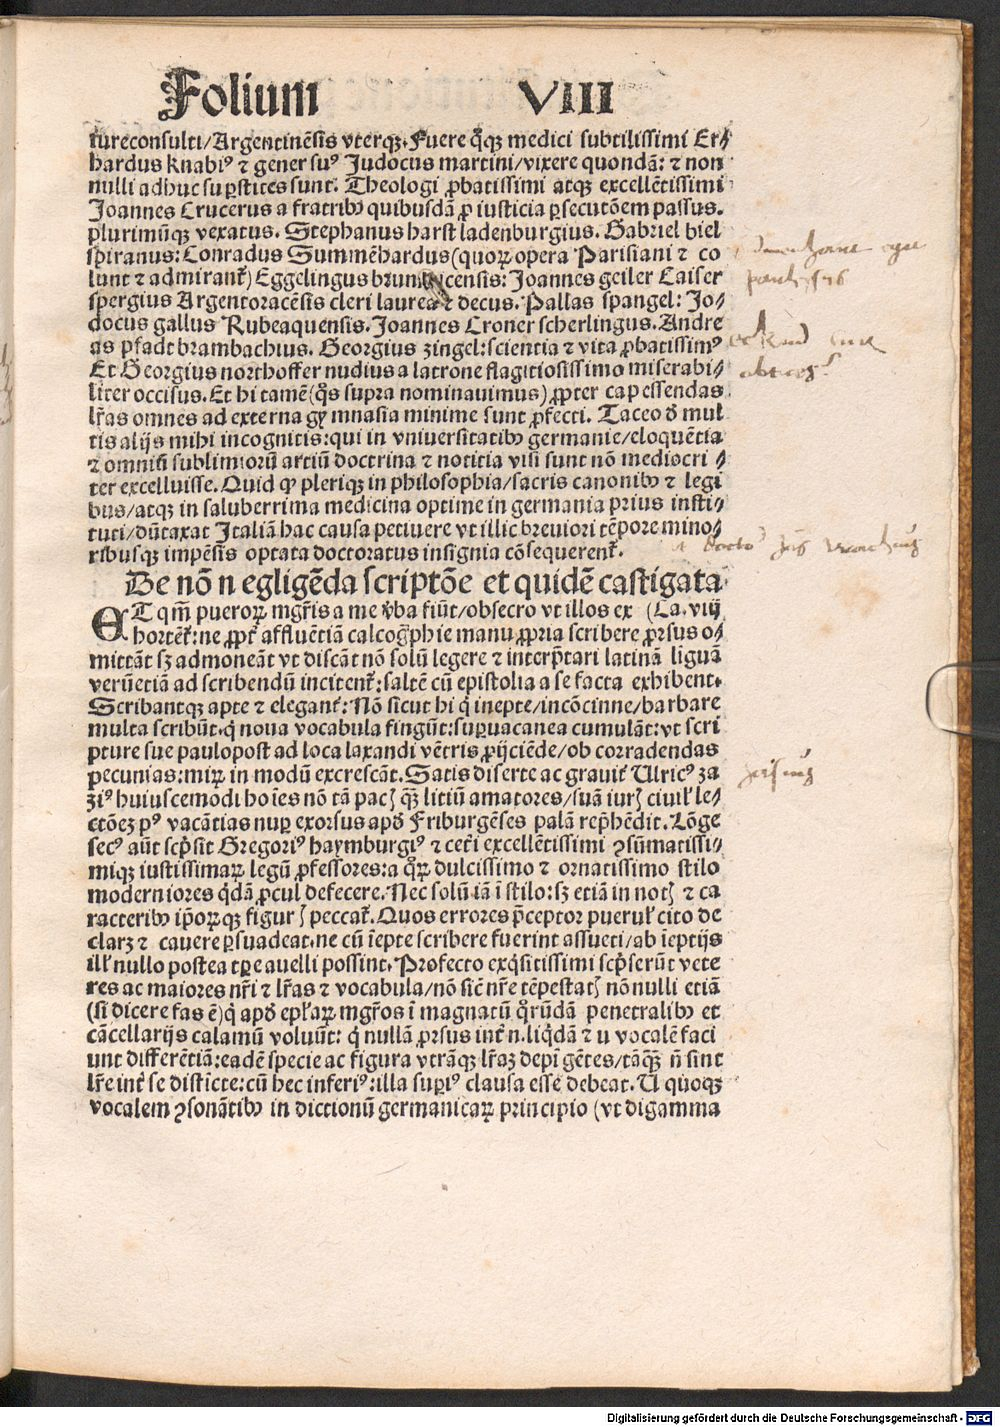 Folium VIII
iureconsulti/Argentinēsis vterqꝫ. Fuere q̊qꝫ medici subtilissimi Er⸗
hardus knabiꝰ ⁊ gener suꝰ Judocus martini/vixere quondā: ⁊ non
nulli adhuc suꝑstites sunt. Theologi ꝓbatissimi atqꝫ excellētissimi
Joannes Crucerus a fratribꝰ quibusdā ꝓ iusticia ꝑsecutōem passus.
plurimūqꝫ vexatus. Stephanus harst ladenburgius. Gabriel biel
spiranus: Conradus Summēhardus (quoꝝ opera Parisiani ⁊ co
lunt ⁊ admirant᷑) Eggelingus censis: Joannes geiler Caiser
spergius Argentoracēsis cleri laurea ⁊ decus. Pallas spangel: Jo⸗
docus gallus Rubeaquensis. Joannes Croner scherlingus. Andre
as pfadt brambachius. Georgius zingel: scientia ⁊ vita ꝓbatissimꝰ
Et Georgius northoffer nudius a latrone flagitiosissimo miserabi⸗
liter occisus. Et hi tamē (q̊s supra nominauimus) ꝓpter capessendas
lr̄as omnes ad externa gymnasia minime sunt ꝓfecti. Taceo đ mul
tis alijs mihi incognitis: qui in vniuersitatibꝰ germanie/eloquētia
⁊ omniū sublimiorū artiū doctrina ⁊ noticia visi sunt nō mediocri⸗
ter excelluisse. Quid ꝙ pleriqꝫ in philosophia/sacris canonibꝰ ⁊ legi
bus/atqꝫ in saluberrima medicina optime in germania prius insti⸗
tuti/dūtaxat Italiā hac causa petiuere vt illic breuiori tēpore mino⸗
ribusqꝫ impēsis optata doctoratus insignia cōsequerent᷑.
De nō negligēda scriptōe et quidē castigata
ET qm̄ pueroꝝ mgr̄is a me v̓ba fiūt/obsecro vt illos ex (Ca. viij
hortēt᷑: ne ꝓpt᷑ affluētiā calcogͣphie manu ꝓpria scribere ꝓrsus o⸗
mittāt sꝫ admoneāt vt discāt nō solū legere ⁊ interp̄tari latinā liguā
verūetiā ad scribendū incitent᷑: saltē cū epistolia a se facta exhibent.
Scribantqꝫ apte ⁊ elegant᷑: Nō sicut hi q̇ inepte/incōcinne/barbare
multa scribūt. q̇ noua vocabula fingūt: suꝑuacanea cumulāt: vt scri
pture sue paulopost ad loca laxandi vētris ꝓijciēde/ob corradendas
pecunias: miꝝ in modū excrescāt. Satis diserte ac grauit᷑ Ulricꝰ za
ziꝰ huiuscemodi hoīes nō tā pacꝭ q̄ꝫ litiū amatores/suā iurꝭ ciuil᷑ le⸗
ctōeꝫ pꝰ vacātias nuꝑ exorsus apđ Friburgēses palā rep̄hēdit. Lōge
secꝰ aūt scp̄sit Gregoriꝰ haymburgiꝰ ⁊ cet᷑i excellētissimi ꝯsūmatissi⸗
miqꝫ iustissimaꝝ legū ꝓfessores: a q̊ꝝ dulcissimo ⁊ ornatissimo stilo
moderniores q̇dā ꝓcul defecere. Nec solū iā ī stilo: sꝫ etiā in notꝭ ⁊ ca
racteribꝰ ip̄oꝝqꝫ figurꝭ peccat᷑. Quos errores p̄ceptor puerul᷑ cito de
claret ⁊ cauere ꝑsuadeat. ne cū īepte scribere fuerint assueti/ab īeptijs
ill᷑ nullo postea tꝑe auelli possint. Profecto exq̇sitissimi scp̄serūt vete
res ac maiores nr̄i ⁊ lr̄as ⁊ vocabula/nō sic̄ nr̄e tēpestatꝭ nōnulli etiā
(si dicere fas ē) q̇ apđ epl̄aꝝ mgr̄os ī magnatū q̊rūdā penetralibꝰ et
cācellarijs calamū voluūt: q̇ nullā ꝓrsus int᷑ n. liq̇dā ⁊ u vocalē faci
unt differētiā: eadē specie ac figura vtrāqꝫ lr̄aꝫ depīgētes/tāq̄ꝫ n̄ sint
lr̄e int᷑ se disticte: cū hec inferiꝰ: illa suꝑiꝰ clausa esse debeat. U quoqꝫ
vocalem ꝯsonātibꝰ in dictionū germanicaꝝ principio (vt digamma
zasius
Digitalisierung gefördert durch die Deutsche Forschungsgemeinschaft - DFG